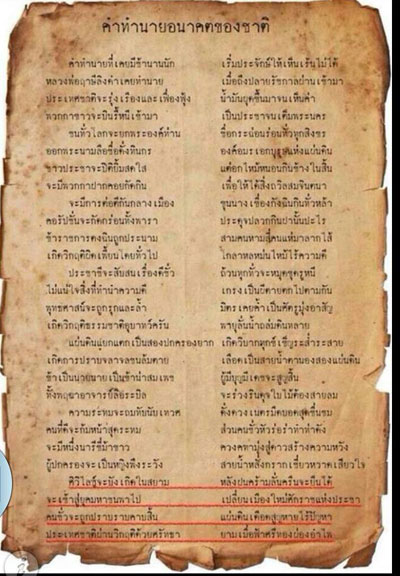 คำทำนายอนาคตของชาติ
คำทำนายที่เคยมีช้านานนัก เริ่มประจักษ์ให้เห็นเร้นไม่ได้
หลวงพ่อฤาษีลิงดำเคยทำนาย เมื่อถึงปลายรัชกาลผ่านเข้ามา
ประเทศชาติจะรุ่งเรืองและเฟื่องฟุ้ง น้ำมันผุดขึ้นมาจนเห็นค่า
พวกกาขาวจะบินรี้หนีเข้ามา เป็นประชาจนเต็มพระนคร
ชนทั่วโลกจะยกพระองค์ท่าน ชื่อกระฉ่อนร่อนทั่วทุกสิงขร
ออกพระนามลือชื่อดั่งทินกร องค์อมรเอกบุรุษแห่งแผ่นดิน
ชาวประชาจะปิติยิ้มสดใส แต่อกไหม้หนอนกินข้างในสิ้น
จะมีพวกกาฝากคอยกัดกิน เพื่อให้ได้สิ่งถวิลสมจินตนา
จะมีการต่อตีกันกลางเมือง ขุนนางเขื่องกังฉินกินทั่วหล้า
คอรัปชั่นจะกัดกร่อนทั้งพารา ประดุจปลวกกินฝานั้นปะไร
ข้าราชการตงฉินถูกประณาม สามคนหามสี่คนแห่มาลากไส้
เกิดวิกฤติผิดเพี้ยนโดยทั่วไป โกลาหลหม่นไหม้ไร้ความดี
ประชาชีจะสับสนเรื่องดีชั่ว ถ้วนทุกทั่วจะหมุดขุดรูหนี
ไม่แน่ใจสิ่งที่ทำนำความดี เกรงเป็นผีตายตกไปตามกัน
พุทธศาสน์จะถูกรุกและล้ำ มิตรเคยค้ำเป็นศัตรูมุ่งอาสัญ
เกิดวิกฤติธรรมชาติอุบาทว์ครัน พายุลั่นน้ำถล่มดินทลาย
แผ่นดินแยกแตกเป็นสองปกครองยาก เกิดวิบากทุกข์เข็ญระส่ำระสาย
เกิดการปราบจลาจลชนล้มตาย เลือดเป็นสายน้ำตานองสองแผ่นดิน
ข้าเป็นนายนายเป็นข้าน่าสมเพช ผู้มีบุญมีเดชจะสูญสิ้น
ทั้งพฤฒาจารย์ลือระบิล จะร่วงรินดุจใบไม้ต้องสายลม
ความระทมจะถมทับนับเทวศ ดั่งดวงเนตรมืดบอดสุดขื่นขม
คนที่ดีจะก้มหน้าสุดระทม ส่วนคนชั่วหัวร่อร่าทำท่าดัง
จะมีหนึ่งนารีขี่ม้าขาว ควงคทามุ่งสู่ดาวสร้างความหวัง
ผู้ปกครองจะเป็นหญิงพึงระวัง สายน้ำหลั่งรากเชี่ยวหวาดเสียวใจ
ศิวิไลซ์จะบังเกิดในสยาม หลังปนคร้ามลั่นครืนจะยืนได้
จะเข้าสู่ยุคมหาชนพาไป เปลี่ยนเมืองใหม่ศักราชแห่งประชา
คนชั่วจะถูกปราบราบคาบสิ้น แผ่นดินเดือดสูญหายไร้ปัญหา
ประเทศชาติผ่านวิกฤติด้วยศรัทธา ยามเมื่อฟ้าศรีทองผ่องอำไพ